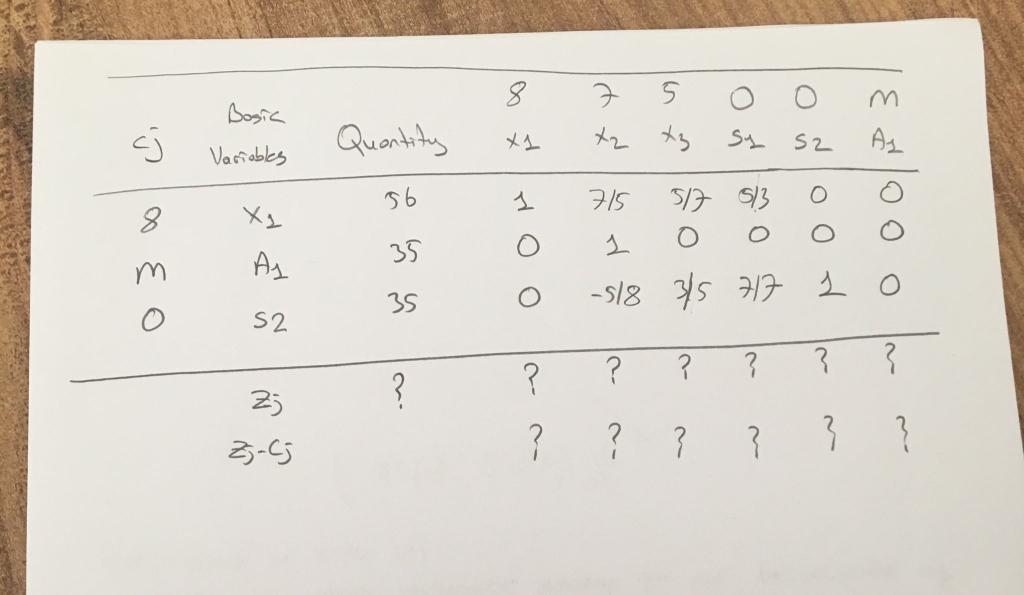 8 7 5 0 0 M
Cj Basic Variables Quantity x1 x2 x3 S1 S2 A1
8 X1 56 1 7/5 5/7 5/3 0 0
M A1 35 0 1 0 0 0 0
0 S2 35 0 -5/8 3/5 7/7 1 0
Zj ? ? ? ? ? ? ?
Zj-Cj ? ? ? ? ? ?